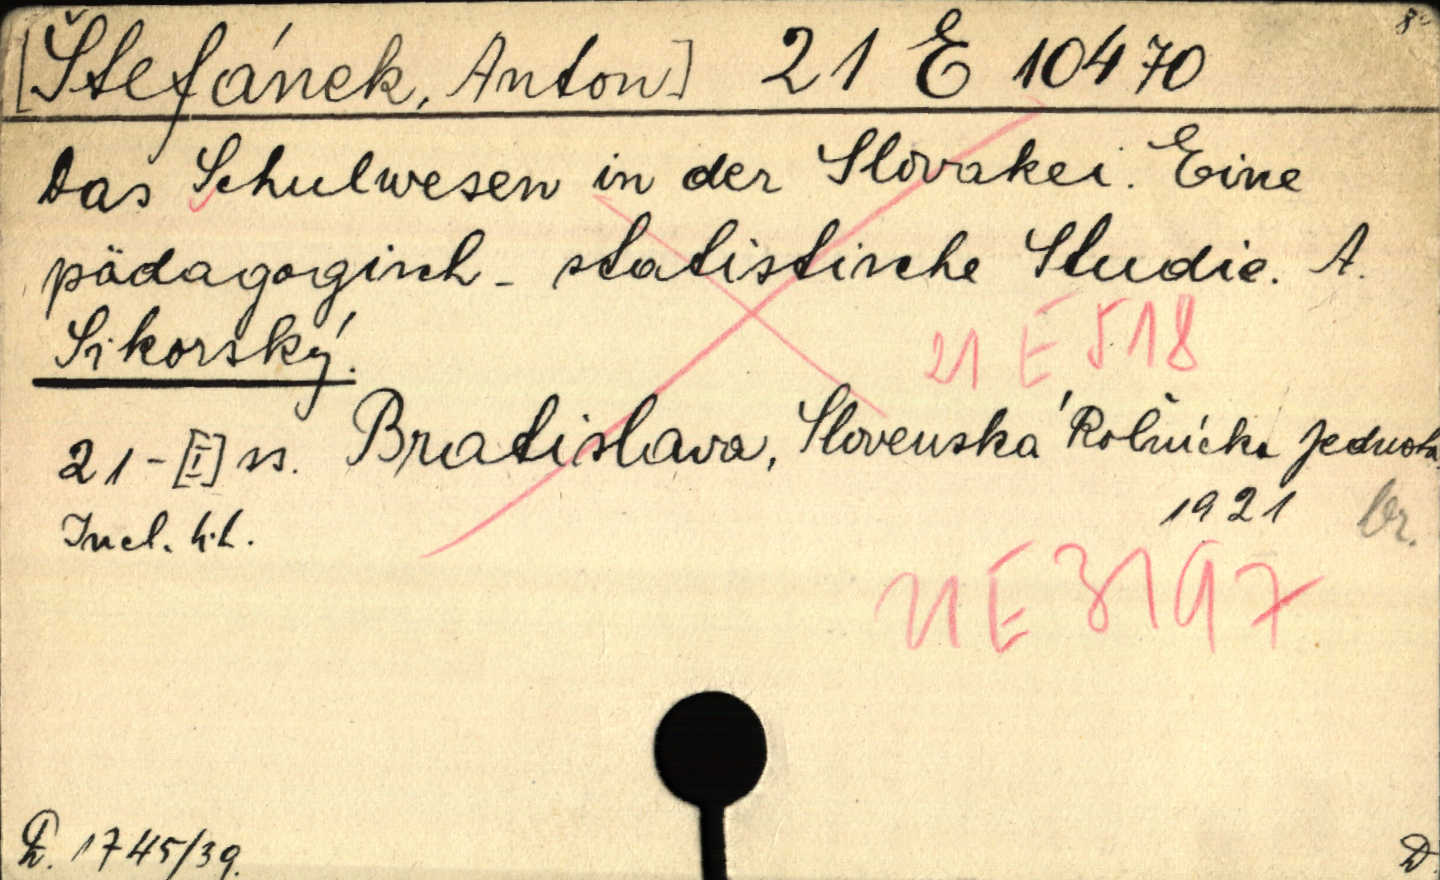 8°
[Štefánek, Anton] 21 E 10470
Das Schulwesen in der Slovakei. Eine
pädagogisch-statistische Studie. A.
Sikorský.
21 E 518
21-[I] ss. Bratislava, Slovenská Rolnícka jednota,
1921 br.
Incl. h.t.
21 E 3197
D. 1745/39.